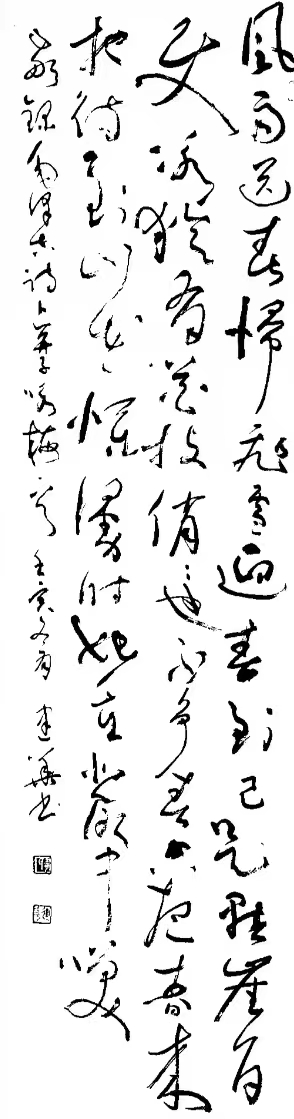 風雨送春歸飛雪迎春到已是懸崖百
丈冰猶有花枝俏俏也不爭春只把春來
報待到山花爛漫時她在叢中笑
敬錄毛澤東詩卜算子咏梅一首壬寅冬月建華書